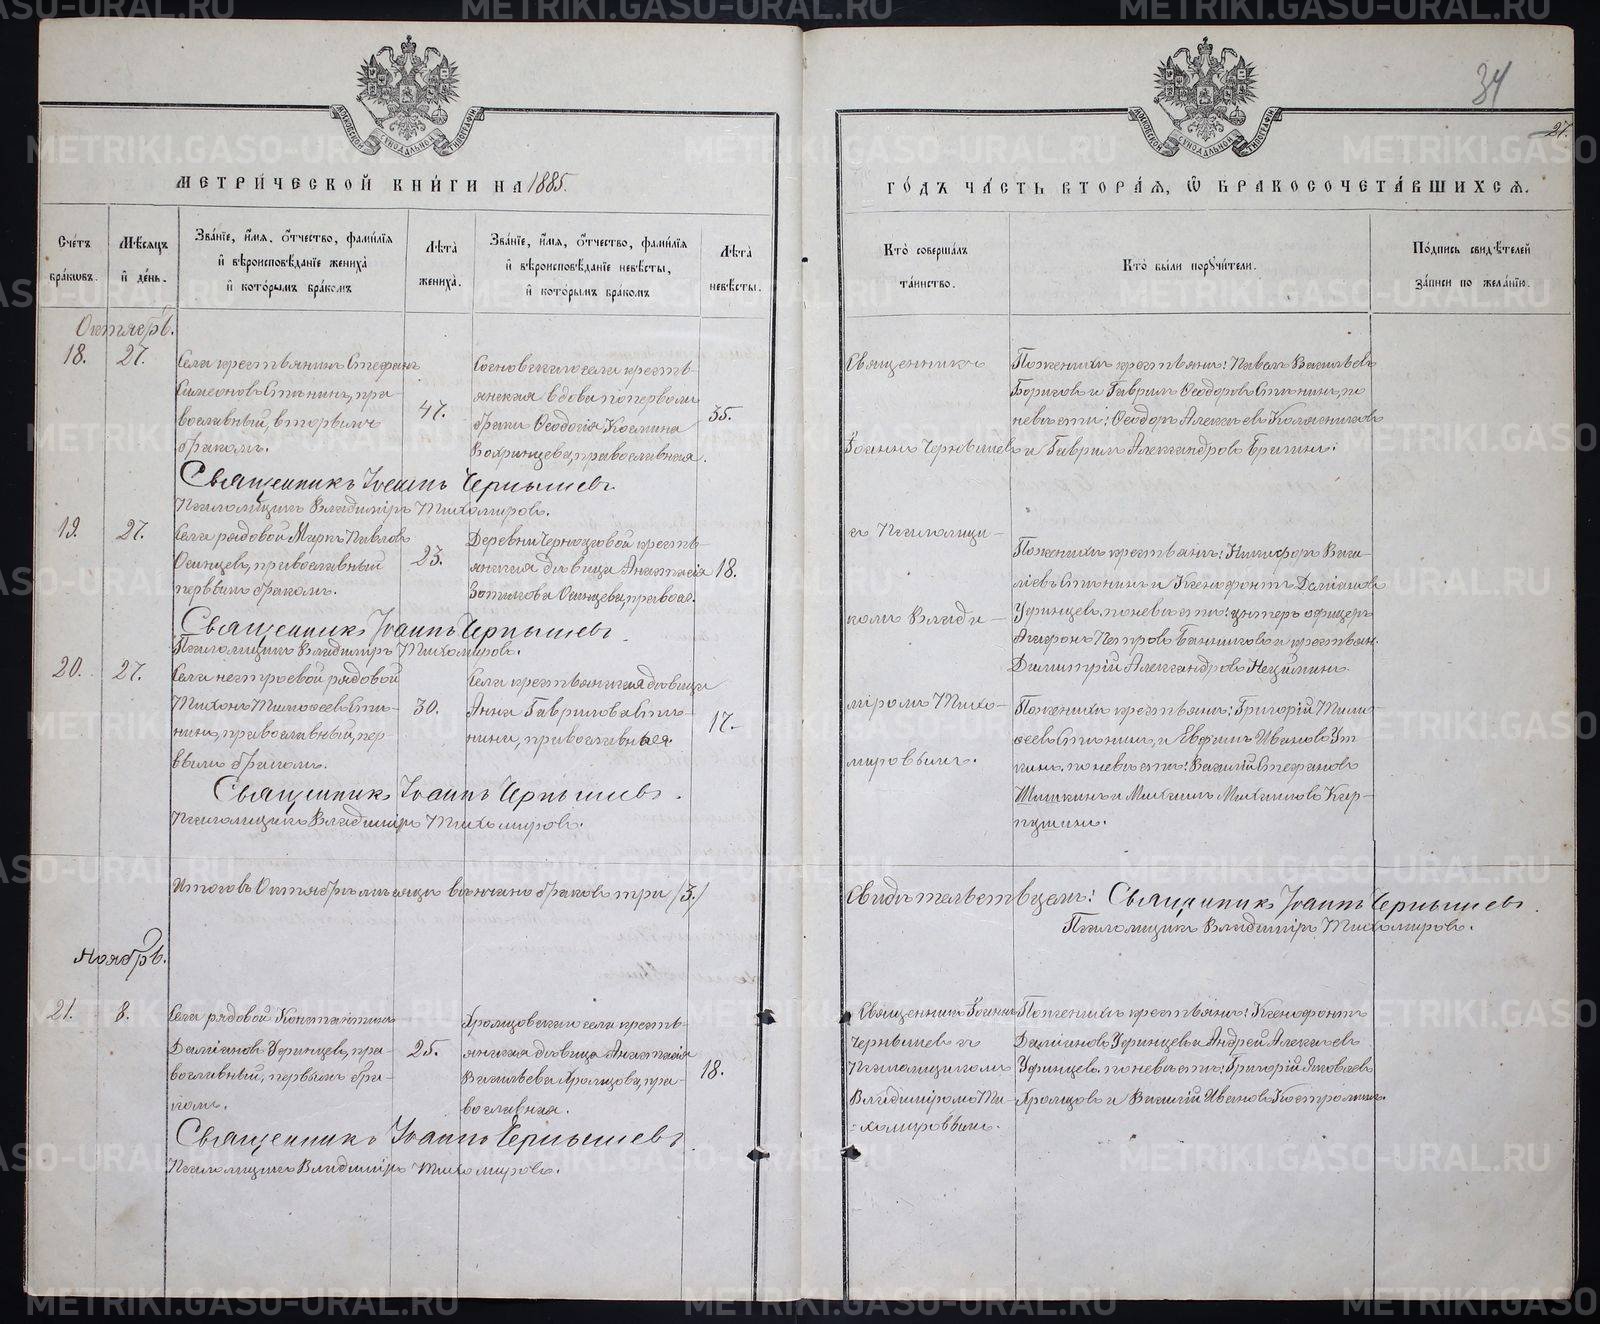 34
27.
МЕТРИ́ЧЕСКОЙ КНИ́ГИ НА 1885.
ГО́ДЪ ЧА́СТЬ ВТОРА́Я, Ѡ҆ БРАКОСОЧЕТА́ВШИХСЯ.
Сче́тъ бра́ковъ.
Мѣ́сяцъ и҆ де́нь.
Зва́нїе, и҆́мя, ѻ҆́тчество, фами́лїя и҆ вѣроисповѣ́данїе жениха̀ и҆ кото́рымъ бра́комъ
Лѣ́та жениха̀.
Зва́нїе, и҆́мя, ѻ҆́тчество, фами́лїя и҆ вѣроисповѣ́данїе невѣ́сты, и҆ кото́рымъ бра́комъ
Лѣ́та невѣ́сты.
Кто̀ соверша́лъ та́инство.
Кто̀ бы́ли порꙋчи́тели.
По́дпись свидѣ́телей за́писи по жела́нїю.
Октябрь.
18.
27.
Села крестьянинъ Стефанъ
Симеоновъ Стънинъ, пра-
вославный, вторымъ
бракомъ.
47.
Сосновскаго села кресть-
янская вдова по первомъ
бракѣ Ѳеодосія Козмина
Вохринцева, православная.
35.
Священникъ
Іоаннъ Чернышевъ
По женихѣ крестьяне: Павелъ Васильевъ
Борисовъ и Гавріилъ Ѳеодоровъ Стънинъ, по
невѣстѣ: Ѳеодоръ Алексѣевъ Колясниковъ
и Гавріилъ Александровъ Брагинъ.
Священникъ Іоаннъ Чернышевъ
Псаломщикъ Владиміръ Тихомировъ.
19.
27.
Села рядовой Маркъ Павловъ
Осинцевъ, православный
первымъ бракомъ.
23.
Деревни Черноусовой кресть-
янская дѣвица Анастасія
Зотикова Осинцева, правосл.
18.
съ Псаломщи-
комъ Влади-
міромъ Тихо-
мировымъ.
По женихѣ крестьяне: Никифоръ Васи-
ліевъ Стънинъ и Ксенофонтъ Даміановъ
Уфинцевъ. по невѣстѣ: унтеръ офицеръ
Петровъ Банниковъ и крестьян.
Димитрій Александровъ
Священникъ Іоаннъ Чернышевъ
Псаломщикъ Владиміръ Тихомировъ.
20.
27.
Села нестроевой рядовой
Тихонъ Тимоѳеевъ Стъ-
нинъ, православный, пер-
вымъ бракомъ.
30.
Села крестьянская дѣвица
Анна Гаврилова Стъ-
нина, православная.
17.
По женихѣ крестьяне: Григорій Тимо-
ѳеевъ Стънинъ, и Евфимъ Ивановъ Ут
кинъ. по невѣстѣ: Василій Стефановъ
Шишкинъ и Михаилъ Михаиловъ Кар-
Священникъ Іоаннъ Чернышевъ.
Псаломщикъ Владиміръ Тихомировъ.
Итого въ Октябрѣ мѣсяцѣ вѣнчано браковъ три /3./
Свидѣтельствуемъ: Священникъ Іоаннъ Чернышевъ.
Псаломщикъ Владиміръ Тихомировъ.
Ноябрь.
21.
8.
Села рядовой Константинъ
Даміановъ Уфинцевъ, пра-
вославный, первымъ бра-
комъ.
25.
Храмцовскаго села кресть-
янская дѣвица Анастасія
Васильева Храмцова, пра-
вославная.
18.
Священникъ Іоаннъ
Чернышевъ съ
Псаломщикомъ
Владиміромъ Ти-
хомировымъ.
По женихѣ крестьяне: Ксенофонтъ
Даміановъ Уфинцевъ и Андрей Алексѣевъ
Уфинцевъ. по невѣстѣ: Григорій Яковлевъ
Храмцовъ и Василій Ивановъ Костроминъ.
Священникъ Іоаннъ Чернышевъ.
Псаломщикъ Владиміръ Тихомировъ.
METRIKI.GASO-URAL.RU